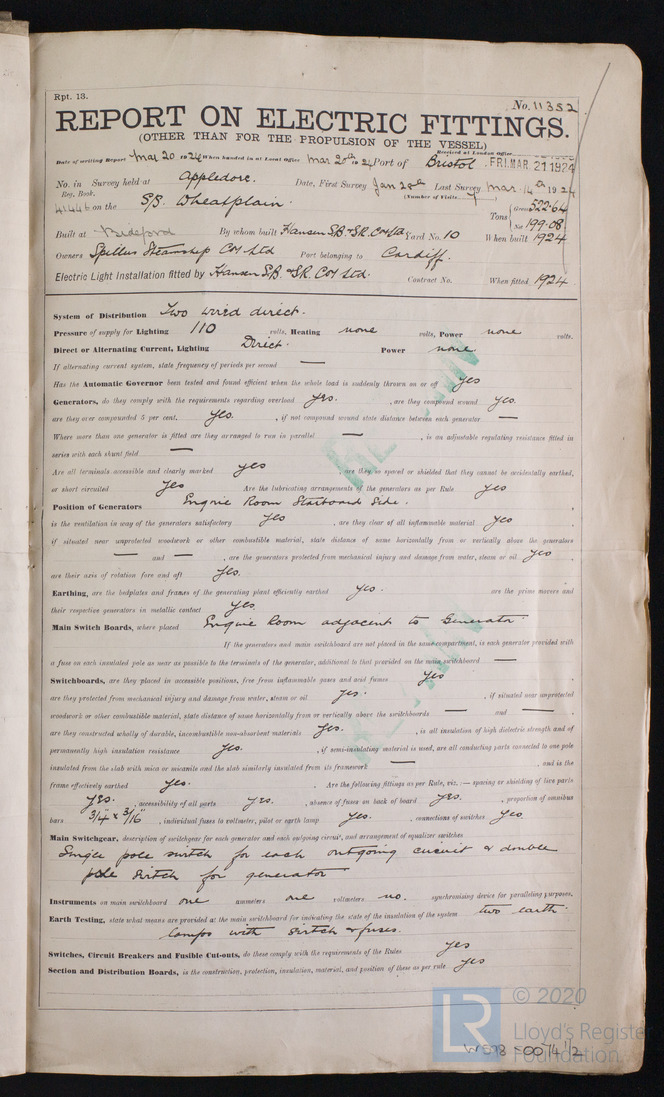 Rpt. 13.
No. 11352
REPORT ON ELECTRIC FITTINGS.
(OTHER THAN FOR THE PROPULSION OF THE VESSEL)
Received at London Office
Date of writing Report Mar 20 1924 When handed in at Local Office Mar 20th 1924 Port of Bristol FRI. MAR. 21 1924
No. in Survey held at Appledore. Date, First Survey Jan 28th Last Survey Mar. 14th 1924
Reg. Book. (Number of Visits 7)
41446 on the S/S. Wheatplain. Tons Gross 522.64 Net 199.08
Built at Bideford By whom built Hansen S.B. & S.R. Co Ltd Yard No. 10 When built 1924
Owners Spillers Steamship Coy Ltd Port belonging to Cardiff.
Electric Light Installation fitted by Hansen S.B. & S.R. Coy Ltd. Contract No. When fitted 1924
System of Distribution Two wired direct.
Pressure of supply for Lighting 110 volts, Heating none volts, Power none volts.
Direct or Alternating Current, Lighting Direct. Power none
If alternating current system, state frequency of periods per second —
Has the Automatic Governor been tested and found efficient when the whole load is suddenly thrown on or off yes
Generators, do they comply with the requirements regarding overload yes. , are they compound wound yes.
are they over compounded 5 per cent. yes. , if not compound wound state distance between each generator —
Where more than one generator is fitted are they arranged to run in parallel — , is an adjustable regulating resistance fitted in
series with each shunt field —
Are all terminals accessible and clearly marked yes , are they so spaced or shielded that they cannot be accidentally earthed,
or short circuited yes Are the lubricating arrangements of the generators as per Rule yes
Position of Generators Engine Room Starboard Side.
is the ventilation in way of the generators satisfactory yes , are they clear of all inflammable material yes
if situated near unprotected woodwork or other combustible material, state distance of same horizontally from or vertically above the generators
— and — , are the generators protected from mechanical injury and damage from water, steam or oil yes
are their axis of rotation fore and aft yes.
Earthing, are the bedplates and frames of the generating plant efficiently earthed yes. are the prime movers and
their respective generators in metallic contact yes
Main Switch Boards, where placed Engine Room adjacent to Generator.
If the generators and main switchboard are not placed in the same compartment, is each generator provided with
a fuse on each insulated pole as near as possible to the terminals of the generator, additional to that provided on the main switchboard —
Switchboards, are they placed in accessible positions, free from inflammable gases and acid fumes yes
are they protected from mechanical injury and damage from water, steam or oil yes. , if situated near unprotected
woodwork or other combustible material, state distance of same horizontally from or vertically above the switchboards — and —
are they constructed wholly of durable, incombustible non-absorbent materials yes. , is all insulation of high dielectric strength and of
permanently high insulation resistance yes. , if semi-insulating material is used, are all conducting parts connected to one pole
insulated from the slab with mica or micanite and the slab similarly insulated from its framework — , and is the
frame effectively earthed yes. Are the following fittings as per Rule, viz. :— spacing or shielding of live parts
yes. , accessibility of all parts yes. , absence of fuses on back of board yes. , proportion of omnibus
bars 3/4" x 3/16" , individual fuses to voltmeter, pilot or earth lamp yes. , connections of switches yes
Main Switchgear, description of switchgear for each generator and each outgoing circuit, and arrangement of equalizer switches
Single pole switch for each outgoing circuit & double
pole switch for generator
Instruments on main switchboard one ammeters one voltmeters no. synchronising device for paralleling purposes.
Earth Testing, state what means are provided at the main switchboard for indicating the state of the insulation of the system two earth
lamps with switch & fuses.
Switches, Circuit Breakers and Fusible Cut-outs, do these comply with the requirements of the Rules yes
Section and Distribution Boards, is the construction, protection, insulation, material, and position of these as per rule yes
© 2020
LR Lloyd's Register
Foundation
W578-0074 1/2